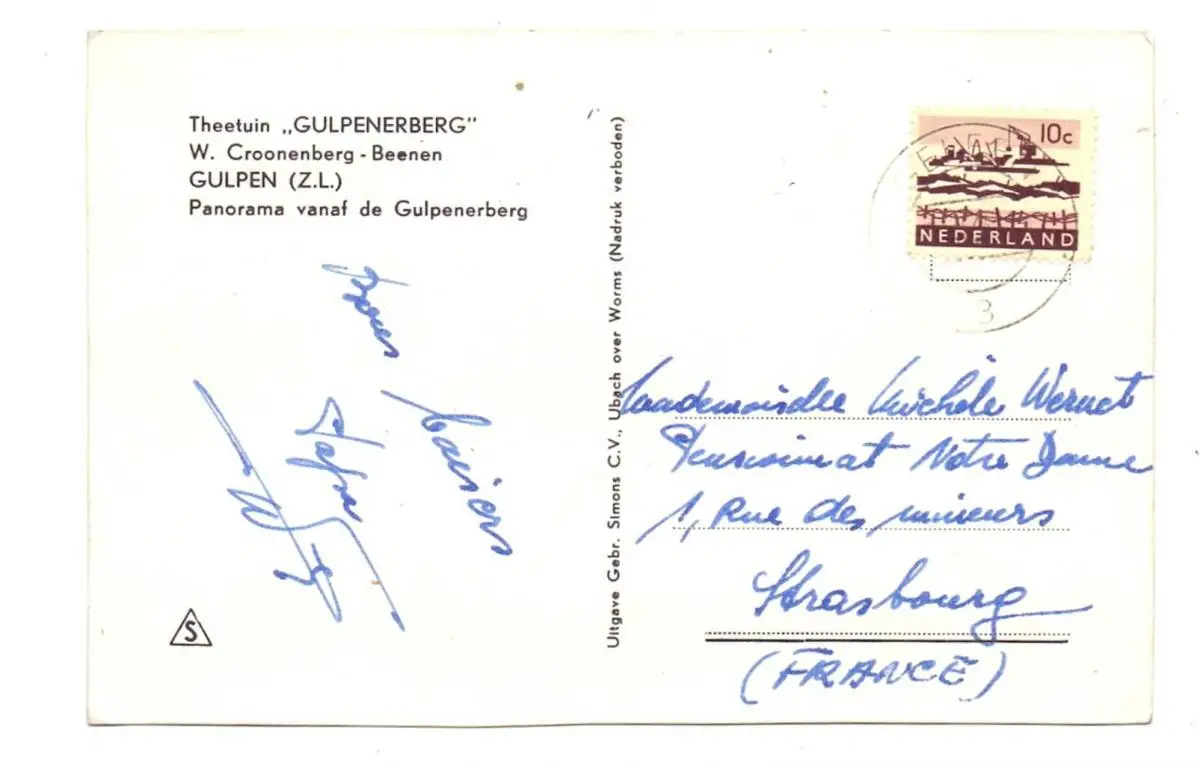 Theetuin „GULPENERBERG”
W. Croonenberg - Beenen
GULPEN (Z.L.)
Panorama vanaf de Gulpenerberg
baisers
S
Uitgave Gebr. Simons C.V., Ubach over Worms (Nadruk verboden)
10c
NEDERLAND
3
Mademoiselle Michèle Wernet
Pensionnat Notre Dame
1, Rue des mineurs
Strasbourg
(FRANCE)